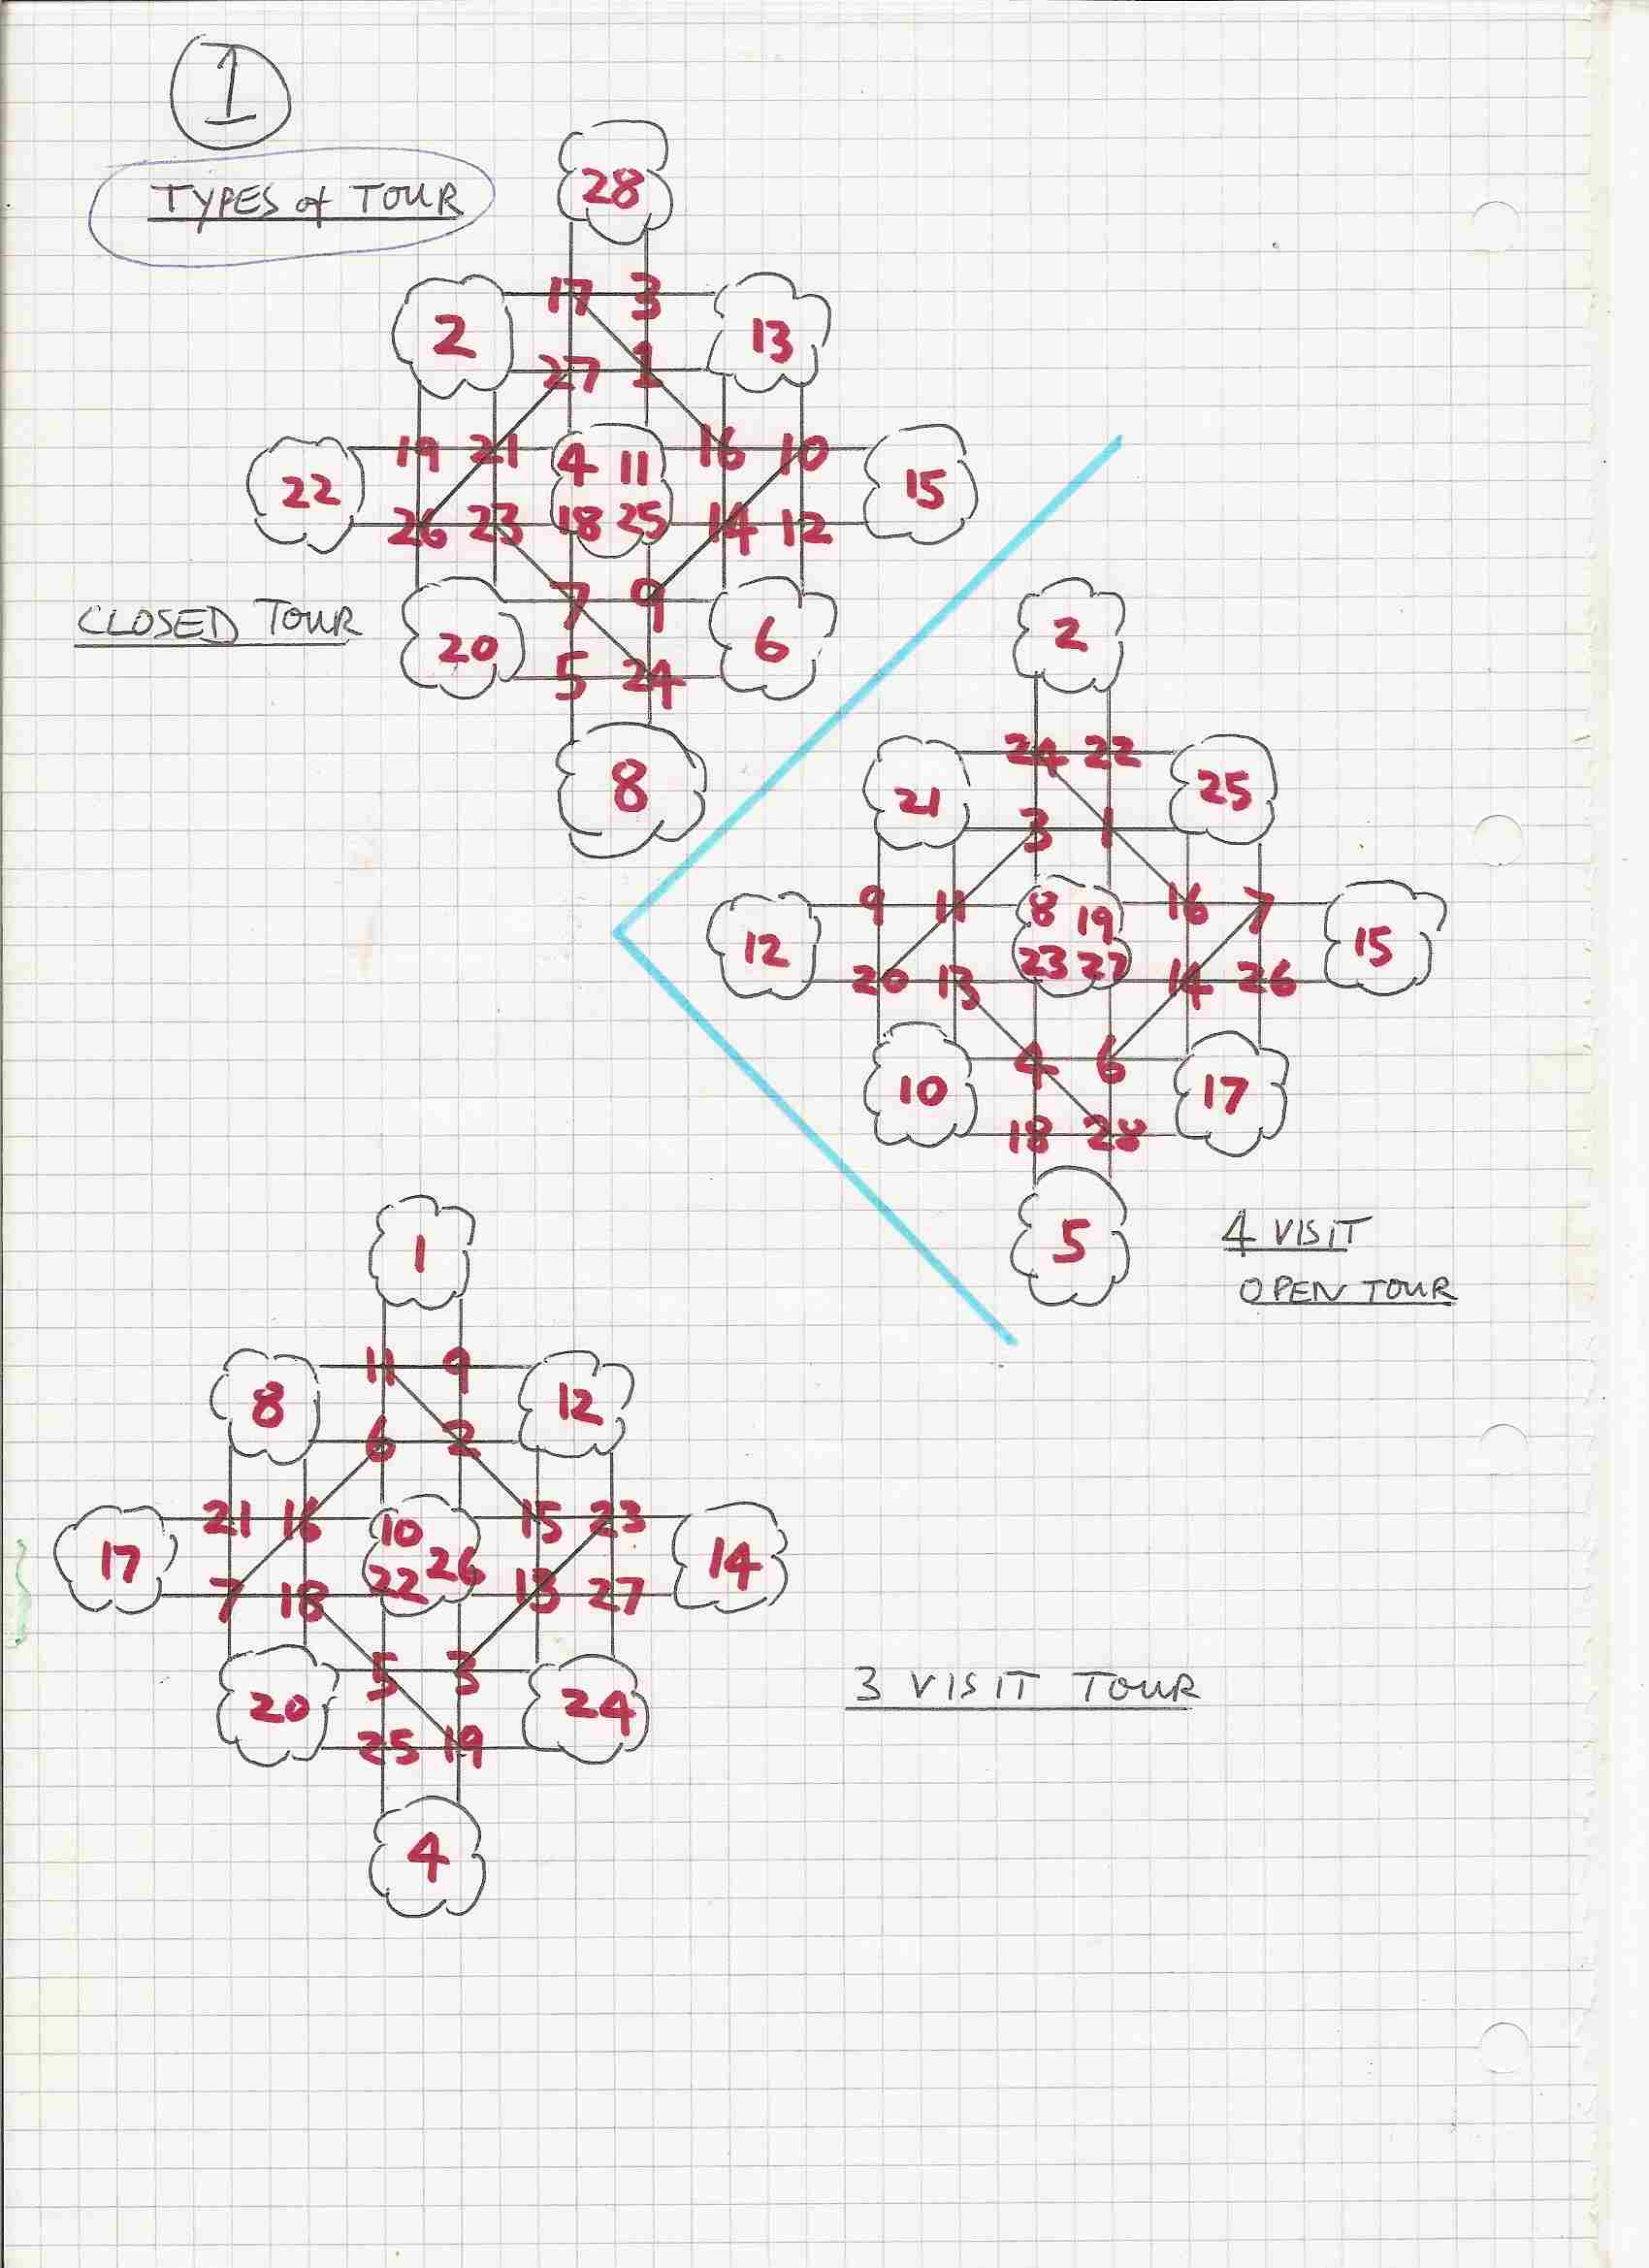 1
TYPES of TOUR
28
17 3
2 13
27 1
19 21 4 11 16 10
22 15
26 23 18 25 14 12
7 9
CLOSED TOUR
20 6
5 24
8
2
24 22
21 25
3 1
9 11 8 19 16 7
12 15
20 13 23 27 14 26
4 6
10 17
18 28
5
4 VISIT
OPEN TOUR
1
11 9
8 12
6 2
21 16 10 15 23
17 26 14
7 18 22 13 27
5 3
20 24
25 19
4
3 VISIT TOUR